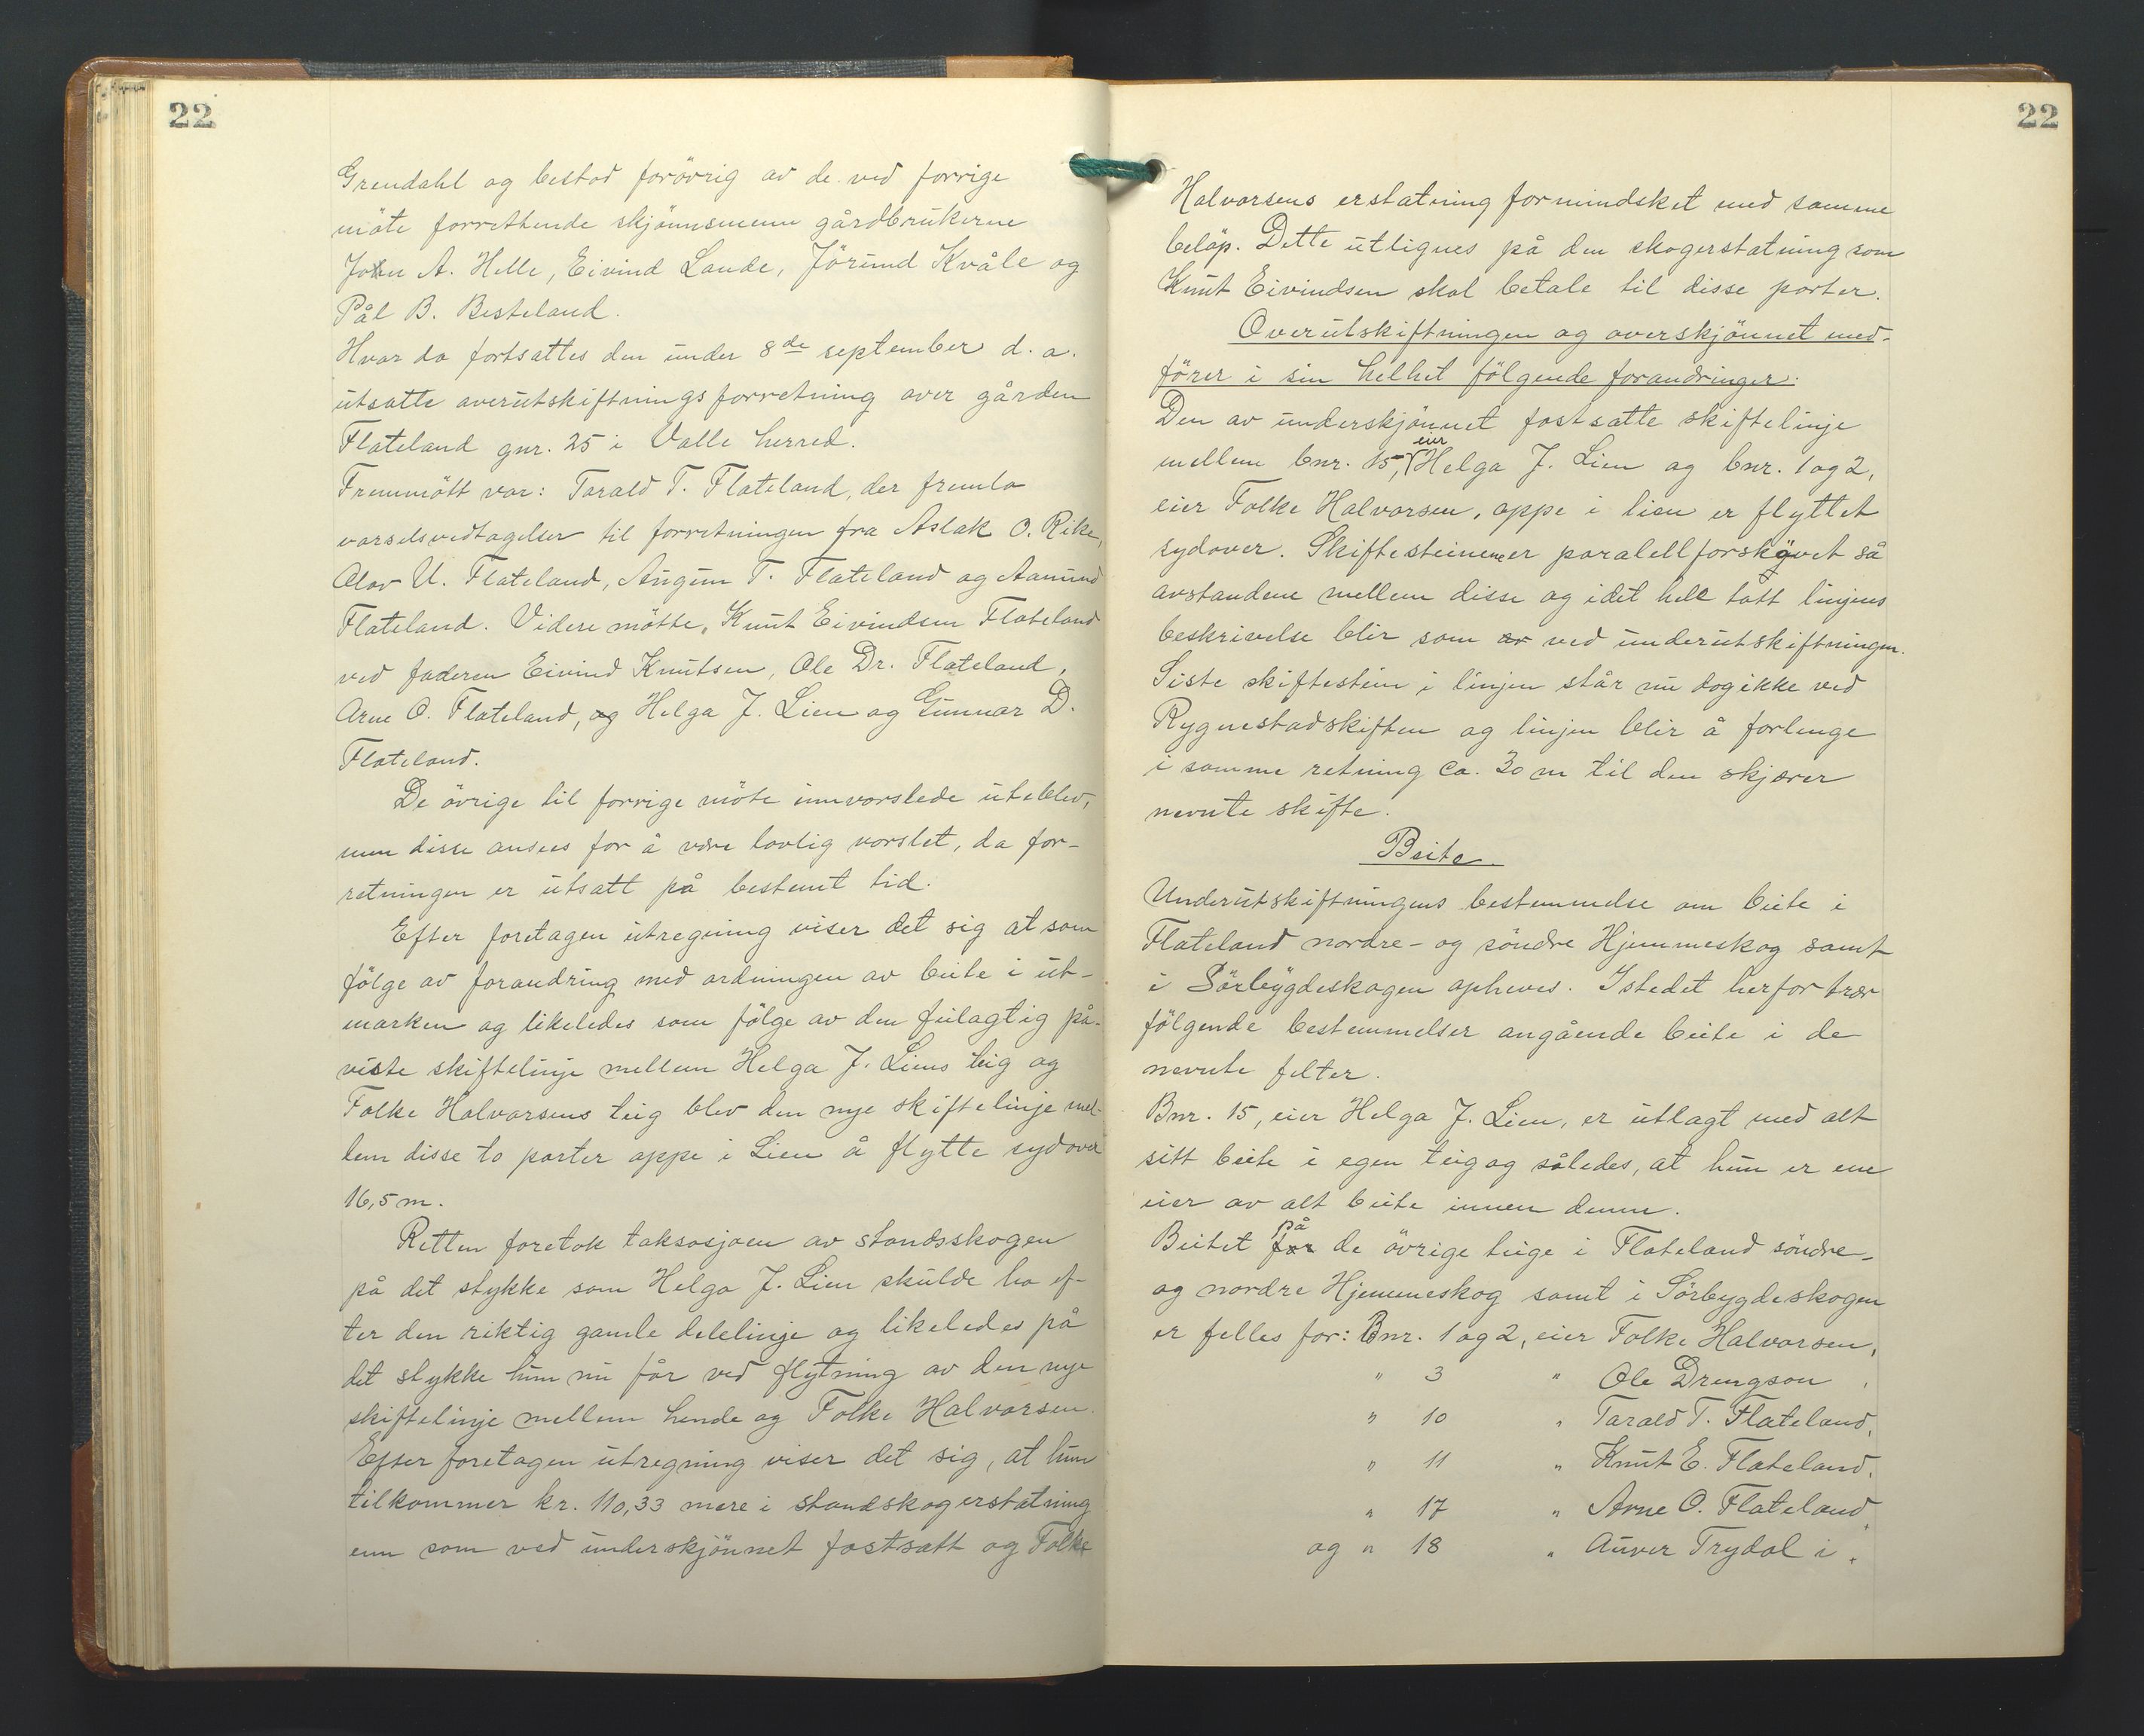 22
Grendahl og bestod forövrig av de ved forrige
möte forrettende skjönnsmenn gårdbrukerne
John A. Helle, Eivind Lande, Jörund Kvåle og
Pål B. Besteland.
Hvor da fortsattes den under 8de september d. a.
utsatte overutskiftningsforretning over gården
Flateland gnr. 25 i Valle herred.
Fremmött var: Tarald T. Flateland, der fremla
varselsvedtagelser til forretningen fra Aslak O. Rike,
Olav U. Flateland, Augun T. Flateland og Aanund
Flateland. Videre mötte, Knut Eivindsen Flateland
ved faderen Eivind Knutsen, Ole Dr. Flateland,
Arne O. Flateland, og Helga J. Lien og Gunnar D.
Flateland.
De övrige til forrige möte innvarslede uteblev,
men disse ansees for å være lovlig varslet, da for-
retningen er utsatt på bestemt tid.
Efter foretagen utregning viser det sig at som
fölge av forandring med ordningen av beite i ut-
marken og likeledes som fölge av den feilagtig på-
viste skiftelinje mellem Helga J. Liens teig og
Folke Halvorsens teig blev den nye skiftelinje mel-
lem disse to parter oppe i Lien å flytte sydover
16,5 m.
Retten foretok taksasjoen av standsskogen
på det stykke som Helga J. Lien skulde ha ef-
ter den riktig gamle delelinje og likeledes på
det stykke hun nu får ved flytning av den nye
skiftelinje mellem hende og Folke Halvorsen.
Efter foretagen utregning viser det sig, at hun
tilkommer kr. 110,33 mere i standskogerstatning
enn som ved underskjönnet fastsatt og Folke
22
Halvorsens erstatning formindsket med samme
belöp. Dette utlignes på den skogerstatning som
Knut Eivindsen skal betale til disse parter.
Overutskiftningen og overskjönnet med-
förer i sin helhet fölgende forandringer:
Den av underskjönnet fastsatte skiftelinje
mellem bnr. 15, eier Helga J. Lien og bnr. 1 og 2,
eier Folke Halvorsen, oppe i lien er flyttet
sydover. Skiftesteinene er paralellforskövet så
avstandene mellem disse og i det hele tatt linjens
beskrivelse blir som er ved underutskiftningen.
Siste skiftestein i linjen står nu dog ikke ved
Rygnestadskiften og linjen blir å forlenge
i samme retning ca. 30 m til den skjærer
nevnte skifte.
Beite
Underutskiftningens bestemmelse om beite i
Flateland nordre- og söndre Hjemmeskog samt
i Sörbygdeskogen opheves. Istedet herfor trær
fölgende bestemmelser angående beite i de
nevnte felter.
Bnr. 15, eier Helga J. Lien, er utlagt med alt
sitt beite i egen teig og således, at hun er ene
eier av alt beite innen denne.
Beitet for på de övrige teige i Flateland söndre-
og nordre Hjemmeskog samt i Sörbygdeskogen
er felles for: Bnr. 1 og 2, eier Folke Halvorsen,
" 3 " Ole Drengson,
" 10 " Tarald T. Flateland,
" 11 " Knut E. Flateland,
" 17 " Arne O. Flateland,
og " 18 " Auver Trydal i.